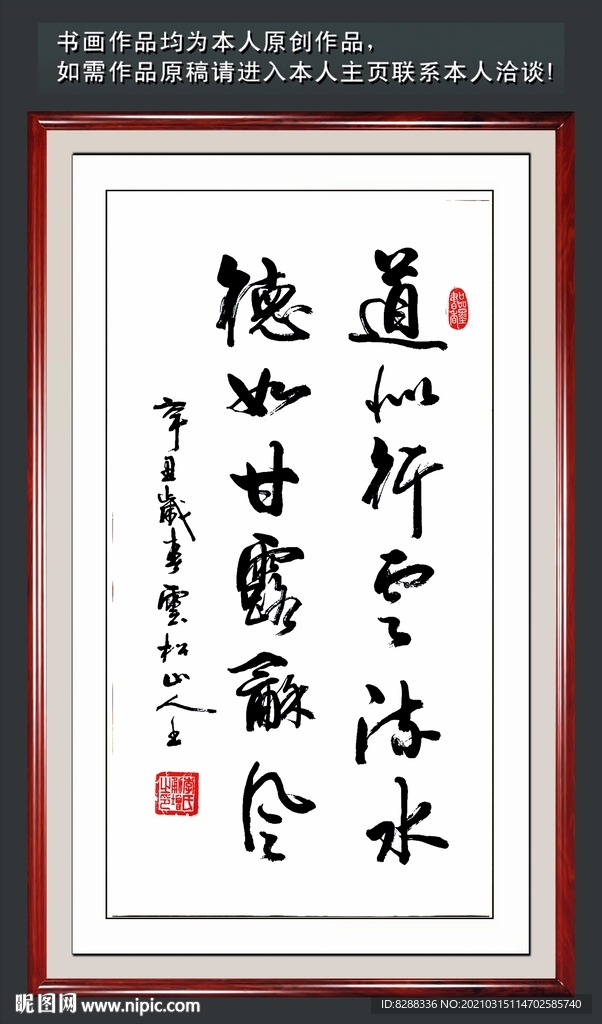 书画作品均为本人原创作品，
如需作品原稿请进入本人主页联系本人洽谈!
道似行雲流水
德如甘露龢风
辛丑歲春雲松山人士
昵图网 www.nipic.com
ID:8288336 NO:20210315114702585740